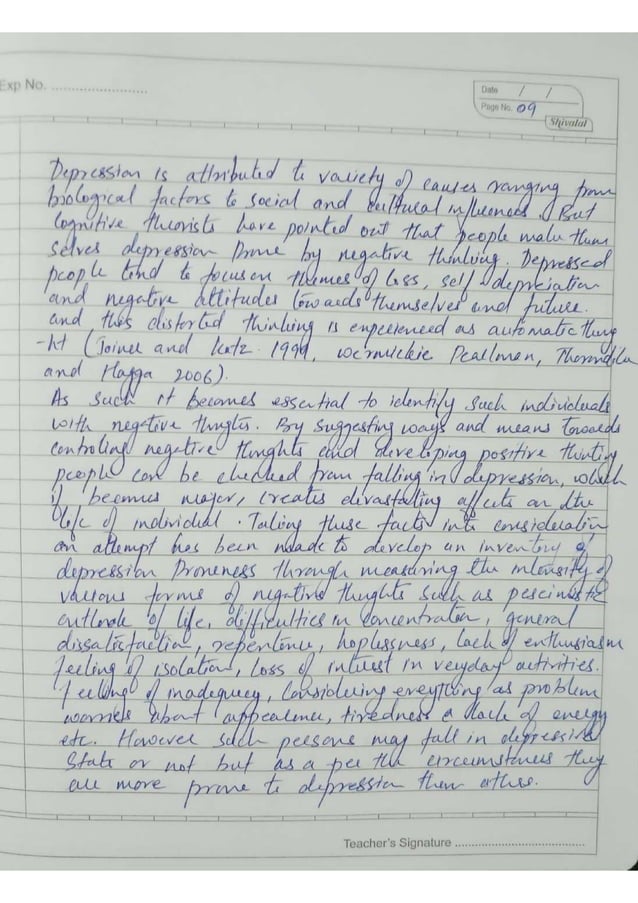 Exp No. ........................
Date / /
Page No. 09
Shivalal
Depression is attributed to variety of causes ranging from
biological factors to social and cultural influences. But
Cognitive theorists have pointed out that people make them
selves depression prone by negative thinking. Depressed
people tend to focus on themes of loss, self depreciation
and negative attitudes towards themselves and future.
and this distorted thinking is experienced as automatic thoug
-ht (Joiner and Katz. 1999, Pearlman, Thorndike
and Hagga 2006).
As such it becomes essential to identify such individuals
with negative thoughts. By suggesting ways and means towards
controling negative thoughts and developing positive thinking
people can be checked from falling in depression, which
if becomes major, creates divastating affects on the
life of individual. Taking these facts into consideration
an attempt has been made to develop an inventory of
depression Proneness through measuring the intensity of
various forms of negative thoughts such as pescimistic
outlook of life, difficulties in concentration, general
dissatisfaction, repentence, hoplessness, lack of enthusiasm
feeling of isolation, loss of intrest in veryday activities.
feeling of inadequecy, Considering ereything as problem
worries about appearence, tiredness & lack of energy
etc. However such persons may fall in depressive
State or not but as a per the circumstances they
are more prone to depression then other.
Teacher's Signature ........................